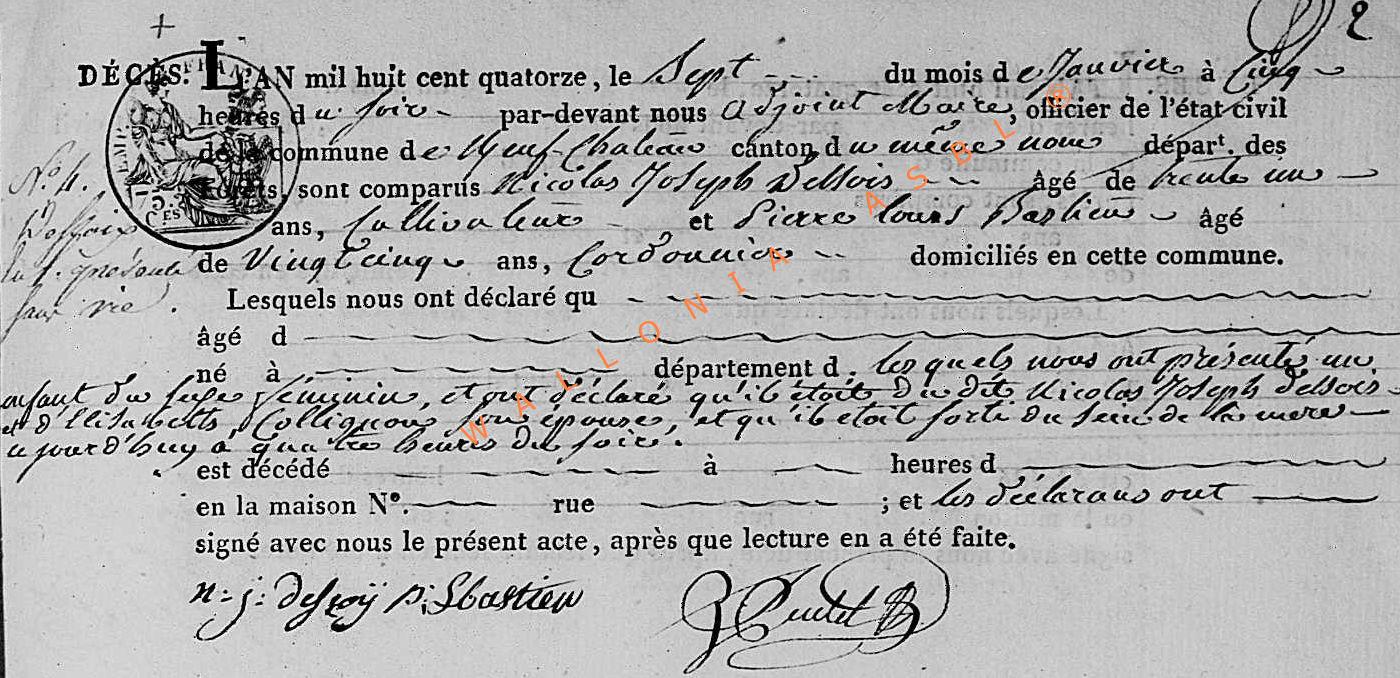 2
DÉCÈS. L'AN mil huit cent quatorze, le Sept du mois de Janvier à Cinq
heures du soir par-devant nous adjoint Maire, officier de l'état civil
de la commune de Neuf-Chateau canton du même nom départ. des
Forêts, sont comparus Nicolas Joseph Dessois âgé de trente un
ans, Cultivateur et Pierre Louis Bastien âgé
de Vingt cinq ans, Cordonnier domiciliés en cette commune.
Lesquels nous ont déclaré qu
âgé d
né à département d. lesquels nous ont présenté un
enfant du sexe féminin, et ont déclaré qu'il étoit du dit Nicolas Joseph Dessois
et d'Elisabeth, Collignon son épouse, et qu'il etoit sorti du sein de la mere
ce jourd'huy à quatre heures du soir.
est décédé à heures d
en la maison N°. rue ; et les déclarans ont
signé avec nous le présent acte, après que lecture en a été faite.
n: j: dessoÿ Bastien
N° 4.
présenté
sans vie.
75 C.ES
WALLONIA ASBL ®